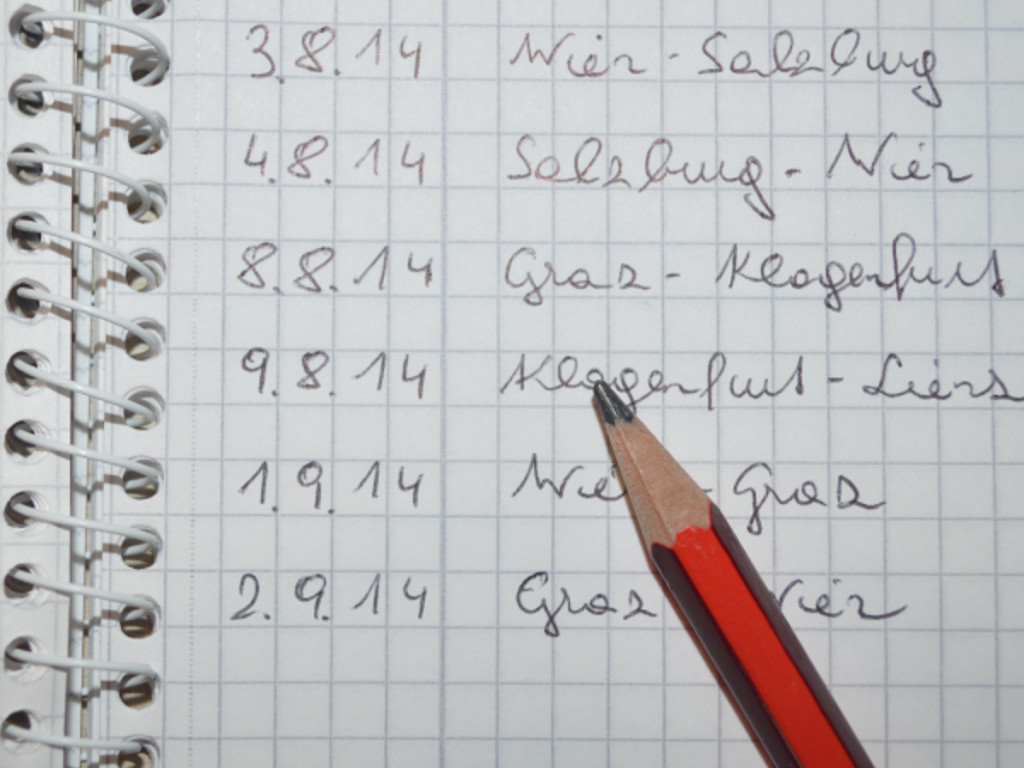 3.8.14 Wien - Salzburg
4.8.14 Salzburg - Wien
8.8.14 Graz - Klagenfurt
9.8.14 Klagenfurt - Lienz
1.9.14 Wien - Graz
2.9.14 Graz Wien